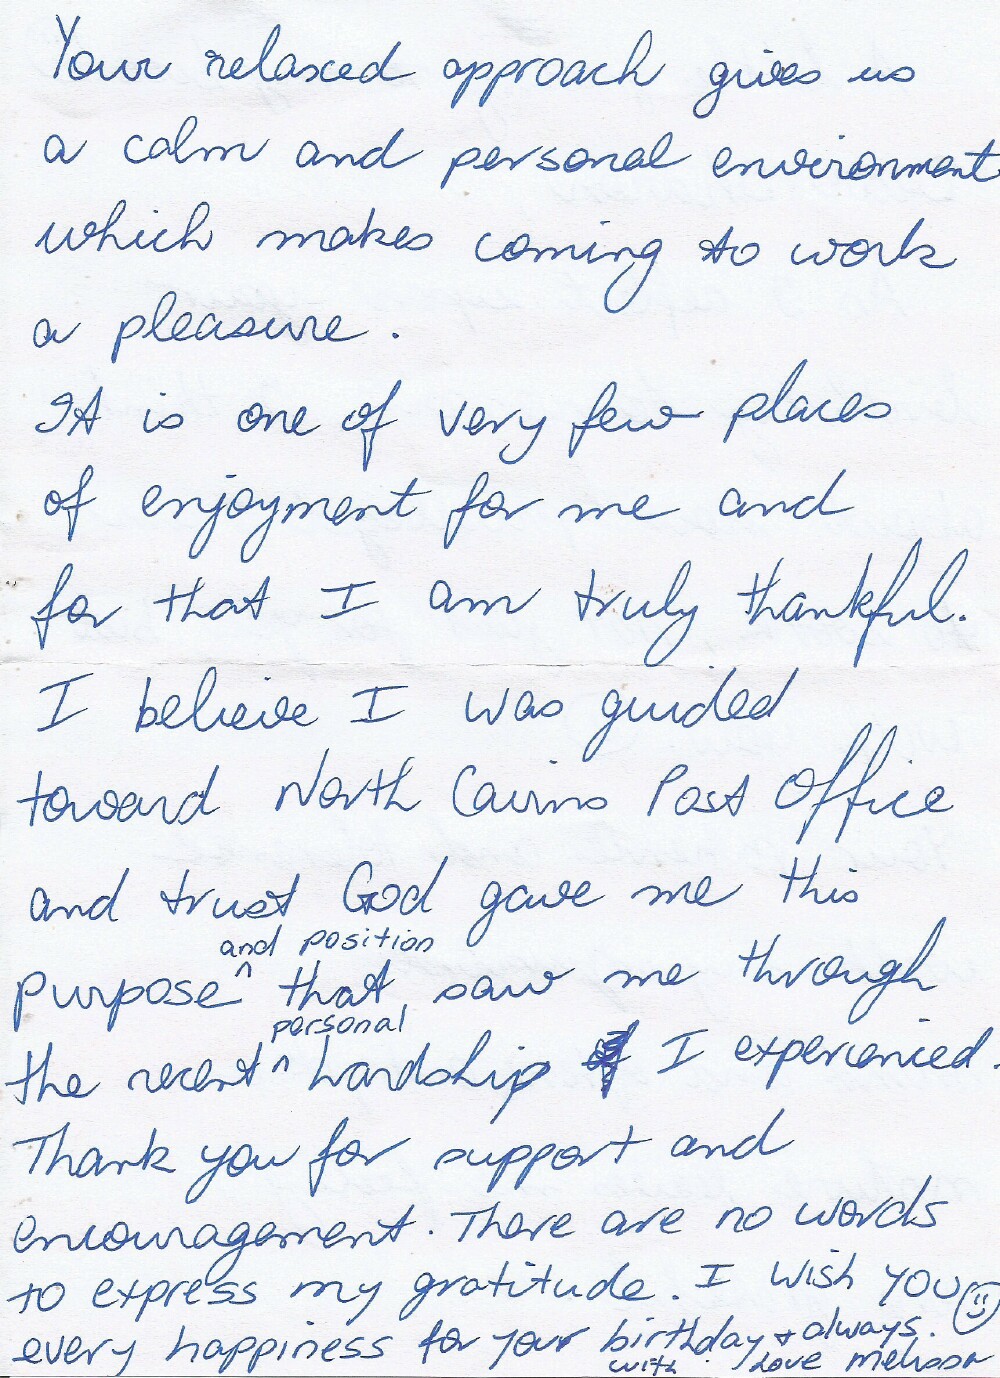 Your relaxed approach gives us
a calm and personal environment
which makes coming to work
a pleasure.
It is one of very few places
of enjoyment for me and
for that I am truly thankful.
I believe I was guided
toward North Cairns Post Office
and trust God gave me this
and position
purpose ^ that saw me through
personal
the recent ^ hardship I experienced.
Thank you for support and
encouragement. There are no words
to express my gratitude. I wish you
every happiness for your birthday + always.
with love Melissa